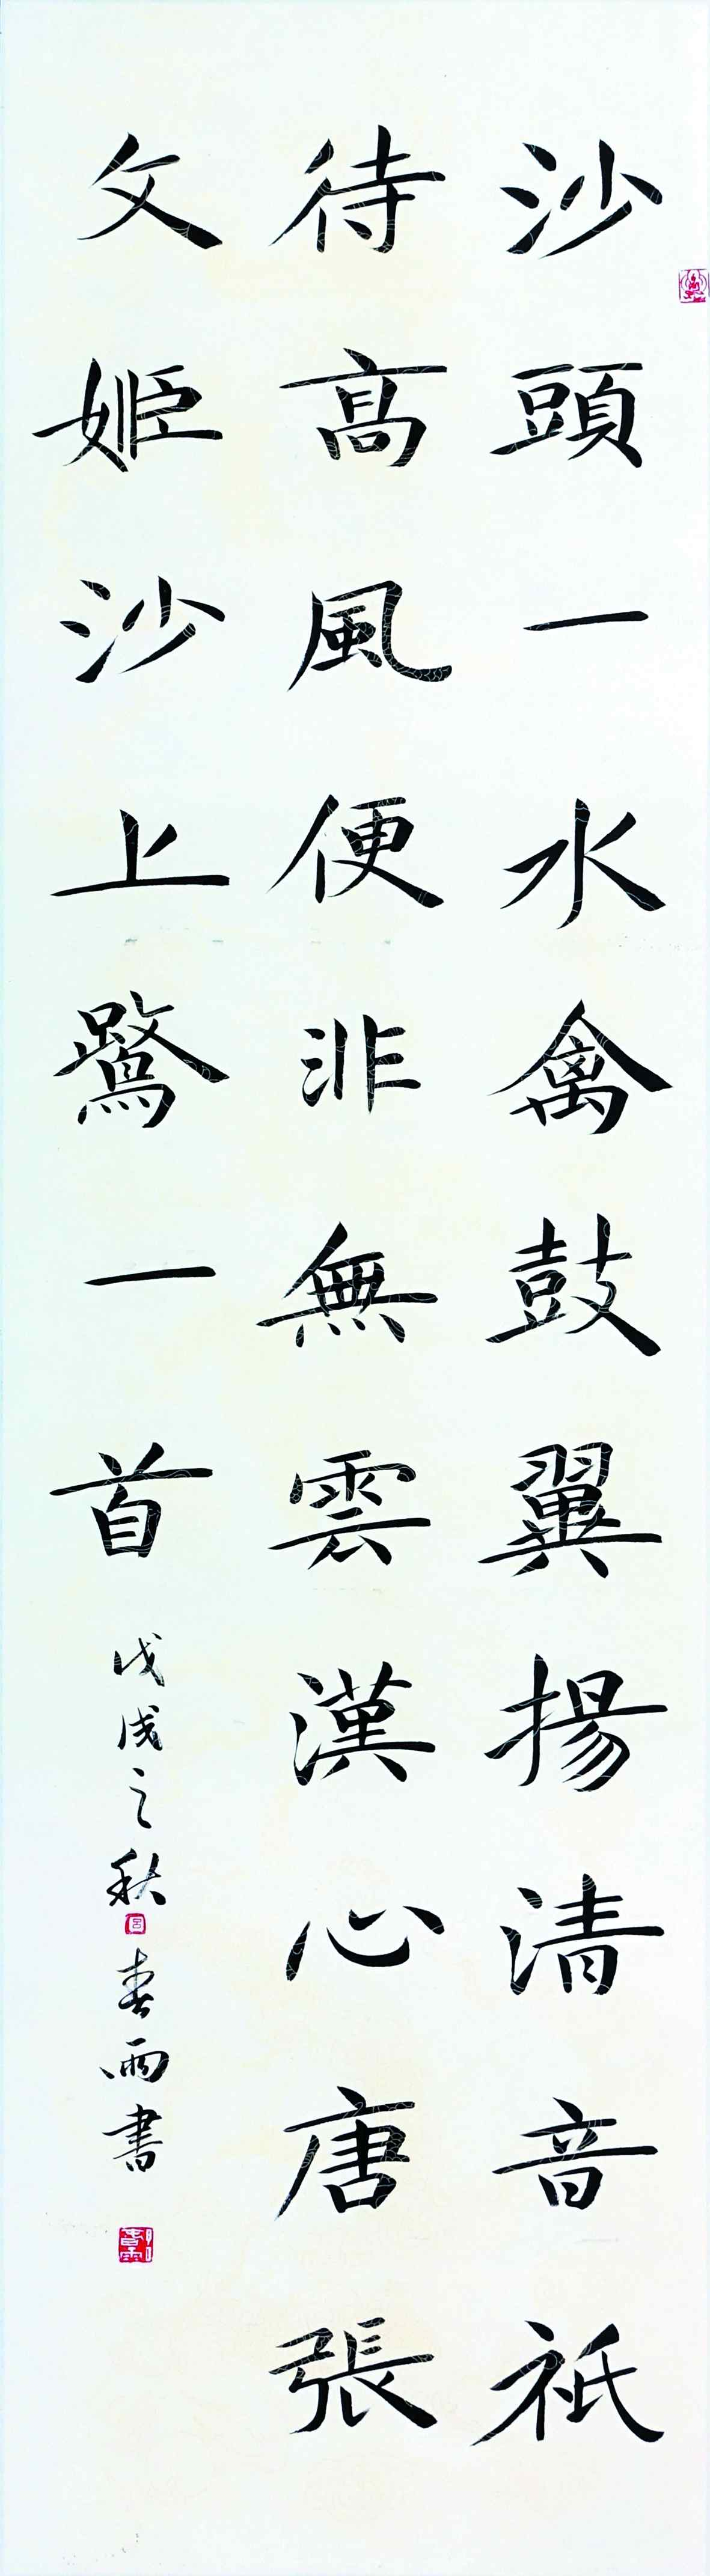 沙頭一水禽鼓翼揚清音祇
待高風便非無雲漢心唐張
文姬沙上鷺一首
戊戌之秋春雨書